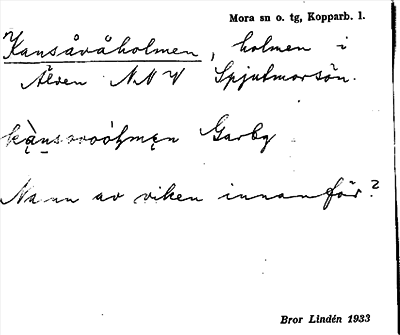 Mora sn o. tg, Kopparb. l.
Kansåråholmen, holmen i
Älven N.N V Spjutmorsön.
Garby
Namn av viken innanför?
Bror Lindén 1933